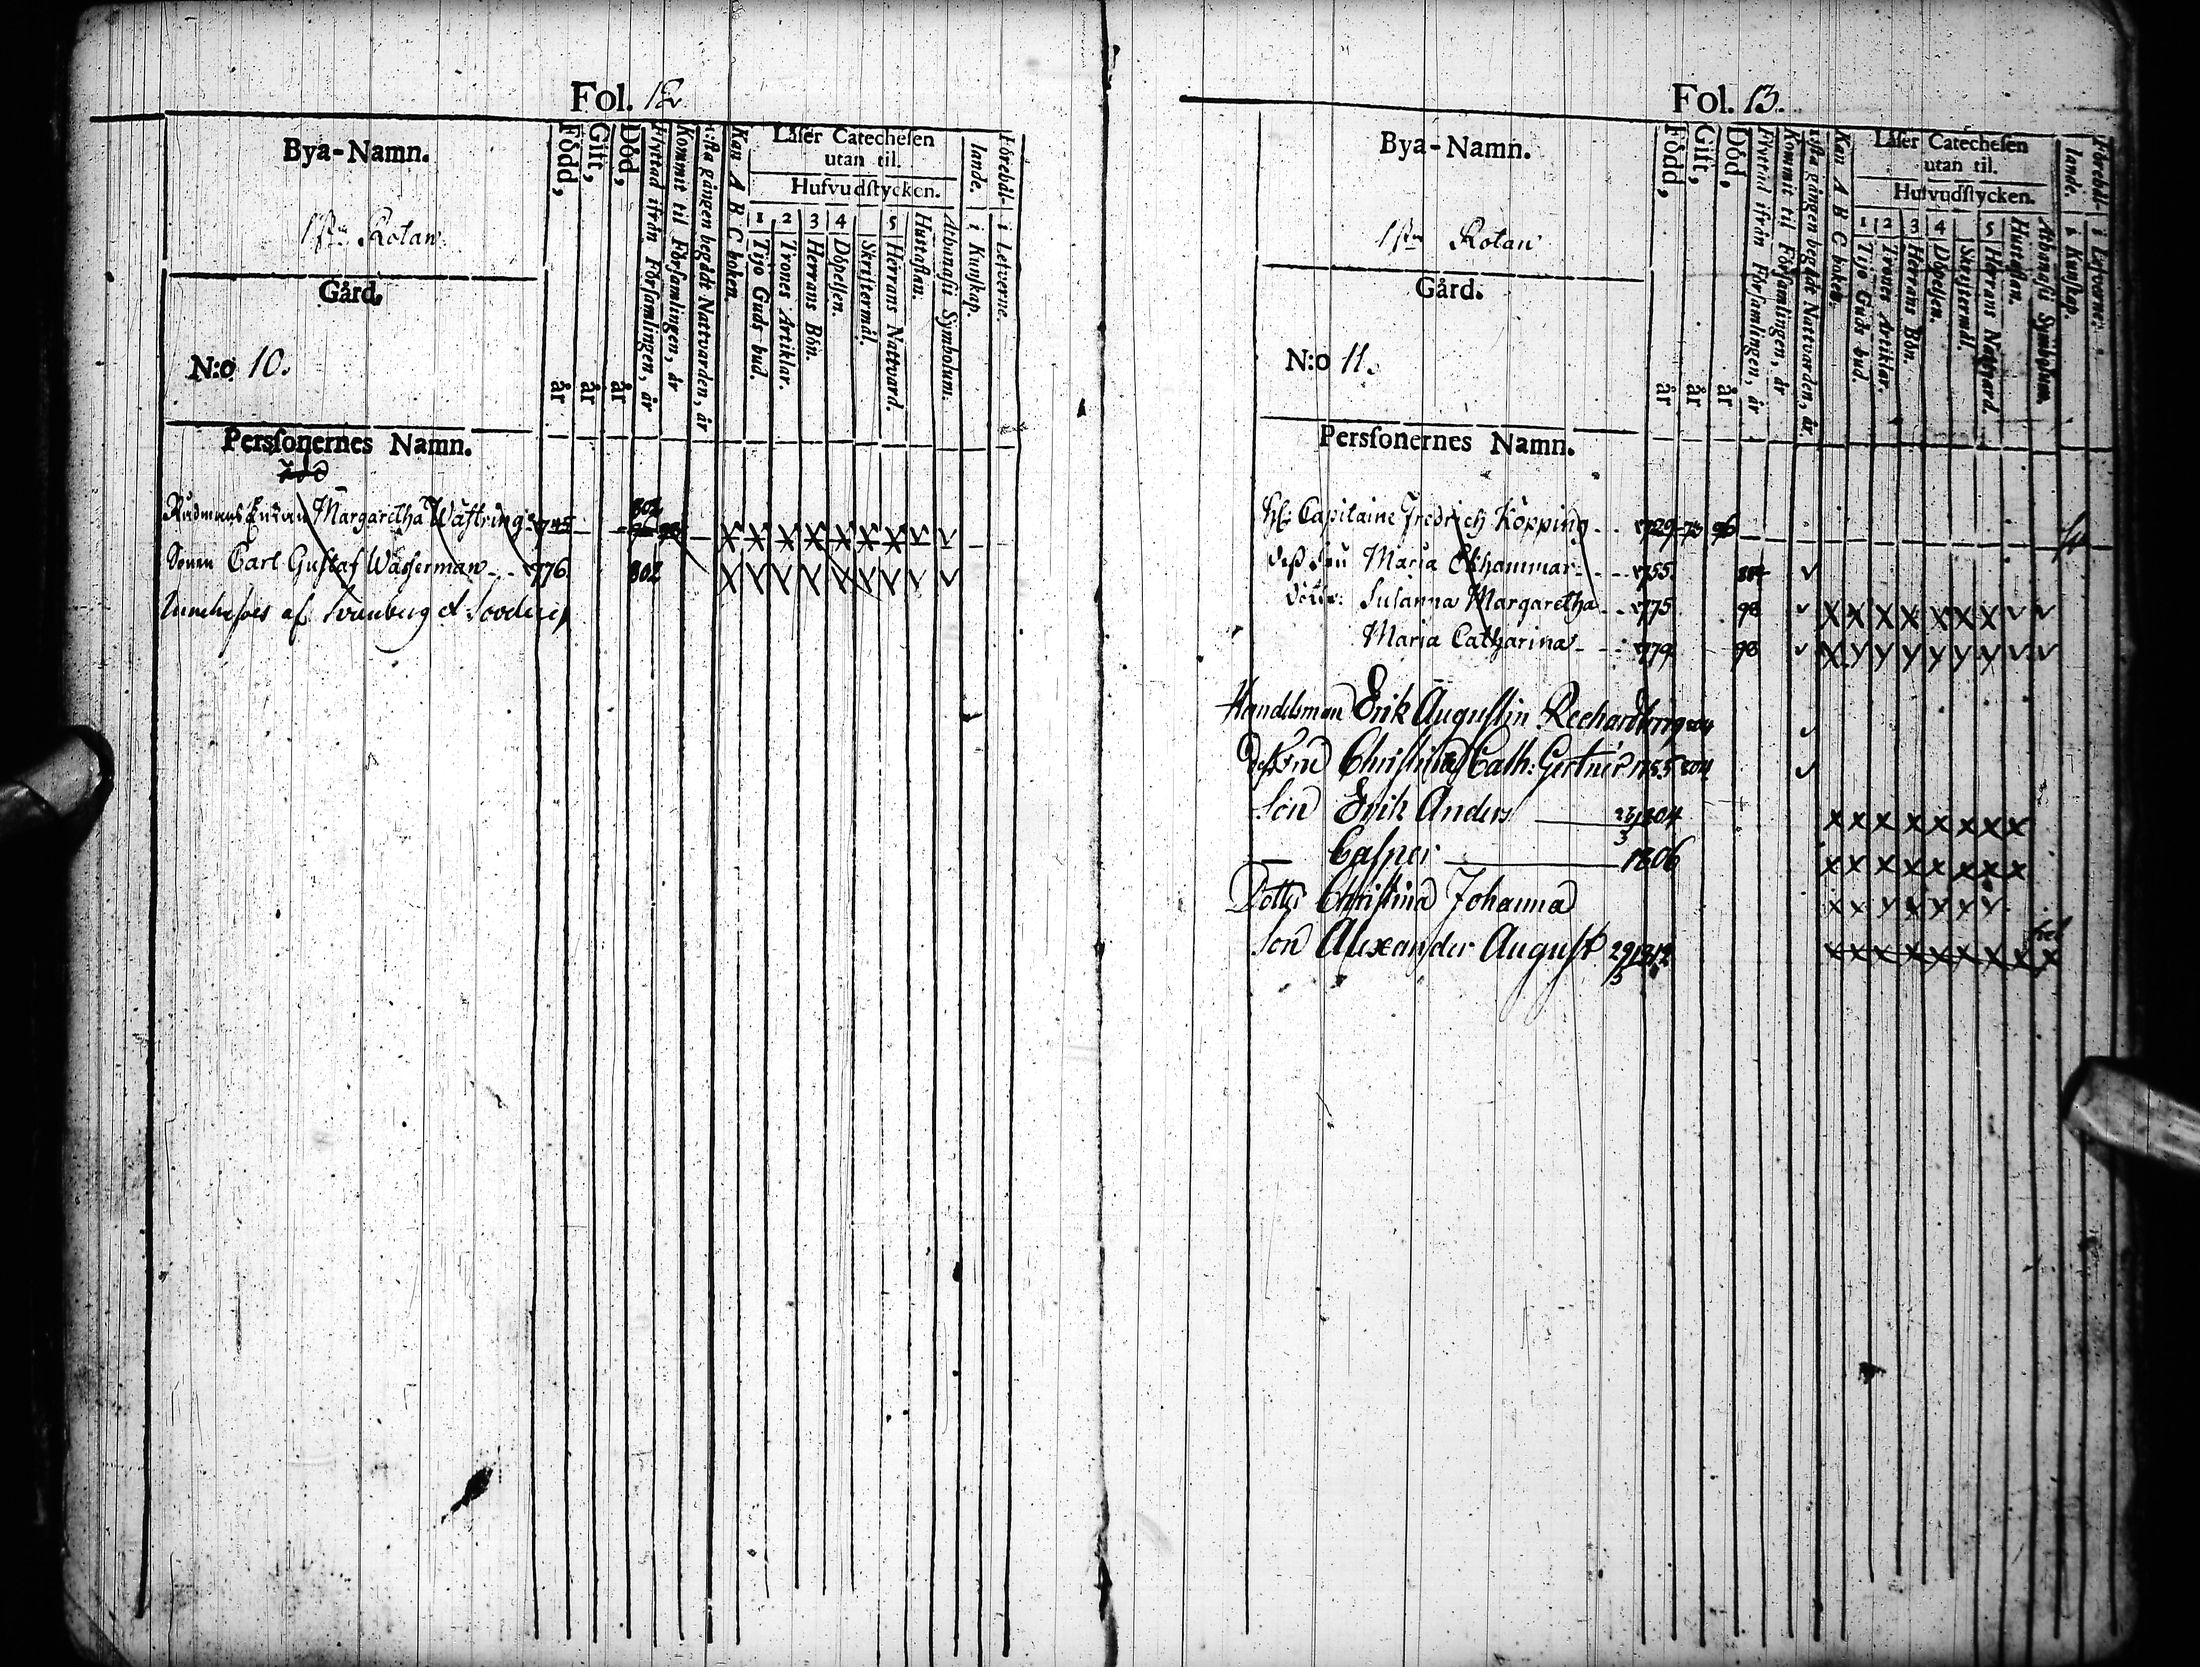 Fol. 12.
Bya-Namn.
1sta Rotan
Gård.
N:o 10.
Född, år
Gift, år
Död, år
Flyttad ifrån Församlingen, år
Kommit til Församlingen, år
sista gången begådt Nattvarden, år
Kan A B C boken.
Läser Catechesen
utan til.
Hufvudstycken.
1 2 3 4 5
Tijo Guds bud.
Trones Artiklar.
Herrans Bön.
Döpelsen.
Skriftermål.
Herrans Nattvard.
Hustaflan.
Athanasii Symbolum.
Förebål-
lande.
i Kunskap.
i Lefverne.
Persfonernes Namn.
802
Margaretha Wästring 1745
Sonen Carl Gustaf Wasserman 776 802
af Svanberg et
Fol. 13.
Bya-Namn.
1sta Rotan
Gård.
N:o 11.
Född, år
Gift, år
Död, år
Flyttad ifrån Församlingen, år
Kommit til Församlingen, år
sista gången begådt Nattvarden, år
Kan A B C boken.
Läser Catechesen
utan til.
Hufvudstycken.
1 2 3 4 5
Tijo Guds bud.
Trones Artiklar.
Herrans Bön.
Döpelsen.
Skriftermål.
Herrans Nattvard.
Hustaflan.
Athanasii Symbolum.
Förebål-
lande.
i Kunskap.
i Lefverne.
Persfonernes Namn.
Capitaine Fredrich Köpping 1729 73 96
Maria Ekhammar 1755
Susanna Margaretha 1775 98
Maria Catharina 1779 98
Handelsman Erik Augustin
Christina Cath: Gertner
Son Erik Anders 1804
Casper 1806
Dotter Christina Johanna
Son Alexander August 29/3 1812